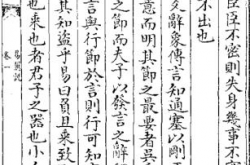 臣臣不密則失身幾事不
不出也
爻辭象傳言知通塞以剛
意而明其節之最要者
之節而夫子以發言之辭
言與行節於言則行可知
其知盜乎易曰負且乘致
卷一
也乘也者君子之器也小人